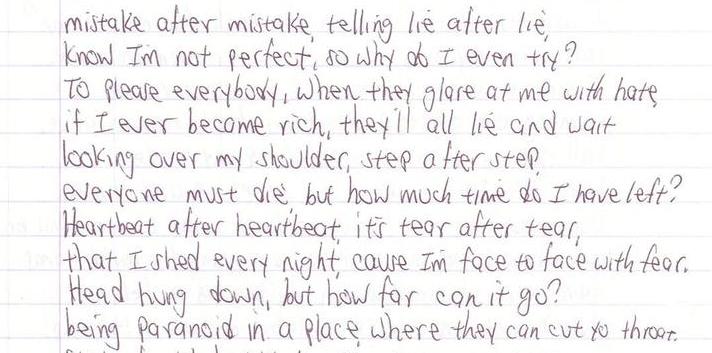 mistake after mistake, telling lie after lie,
know I'm not perfect, so why do I even try?
To please everybody, when they glare at me with hate,
if I ever become rich, they'll all lie and wait
looking over my shoulder, step after step,
everyone must die, but how much time do I have left?
Heartbeat after heartbeat, it's tear after tear,
that I shed every night, cause I'm face to face with fear.
Head hung down, but how far can it go?
being paranoid in a place, where they can cut yo throat.